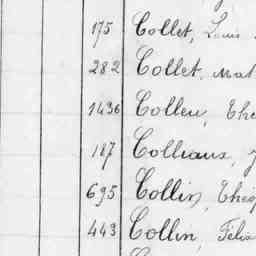 175 Collet, Louis
282 Collet, Mat
1436 Colleu, The
187 Colliaux, J
695 Collin, Théo
443 Collin, Félix